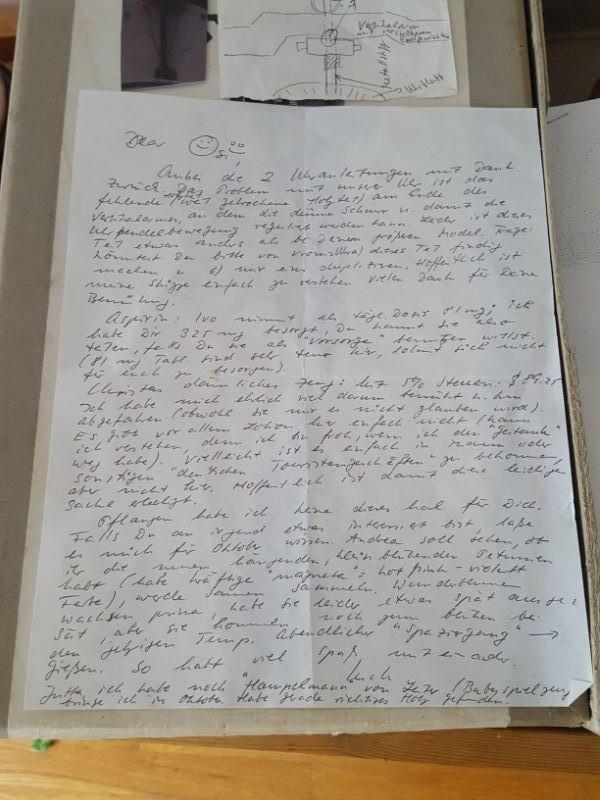 Vertikalarm
mit verstellbarem
Metallstift
Uhrblatt
Dear
Anbei die 2 Uhranleitungen mit Dank
zurück. Das Problem mit unser Uhr ist das
fehlende (weil gebrochene Holzteil) am Ende des
Vertikalarmes, an dem die dünne Schnur u. damit die
Uhrpendelbewegung reguliert werden kann. Leider ist dieses
Teil etwas anders als bei Deinem größeren Model. Frage:
könntest Du bitte von dieses Teil findig
machen u. o) nur eins duplizieren. Hoffentlich ist
meine Skizze einfach zu verstehen vielen Dank für Deine
Bemühung.
Aspirin: Ivo nimmt als tägl. Dosis 81 mg; ich
habe Dir 325 mg besorgt, Du kannst sie also
teilen, falls Du sie als "Vorsorge" benutzen willst.
(81 mg Tabl. sind sehr teuer hier, lohnt sich nicht
für euch zu besorgen).
Christas dämliches Zeug: Mit 5% Steuern: $ 89.25
Ich habe mich ehrlich viel darum bemüht u. bin
abgefahren (obwohl sie mir es nicht glauben wird).
Es gibt vor allem Lotion hier einfach nicht (kann
ich verstehen, denn ich bin froh, wenn ich den "Gestank"
weg habe). Vielleicht ist es einfach in oder
sonstigen "deutschen Touristengeschäften" zu bekommen,
aber nicht hier. Hoffentlich ist damit diese leidige
Sache erledigt.
Pflanzen habe ich keine dieses mal für Dich.
Falls Du an irgend etwas interessiert bist, laße
es mich für Oktober wissen. Andrea soll sehen, ob
ihr die neuen hangenden, klein blütenden Petunien
habt (habe kräftige "magneta" = hot pink - violett
Farbe), werde Samen sammeln. Wunderblumen
wachsen prima, habe sie leider etwas spät ausge-
sät, aber sie kommen noch zum blühen bei
den jetzigen Temp. Abendlicher "Spaziergang" →
gießen. So habt viel Spaß miteinander.
Jutta ich habe noch "Hampelmann" von (Babyspielzeug
bringe ich in Oktober. Habe gerade richtiges Holz gefunden.